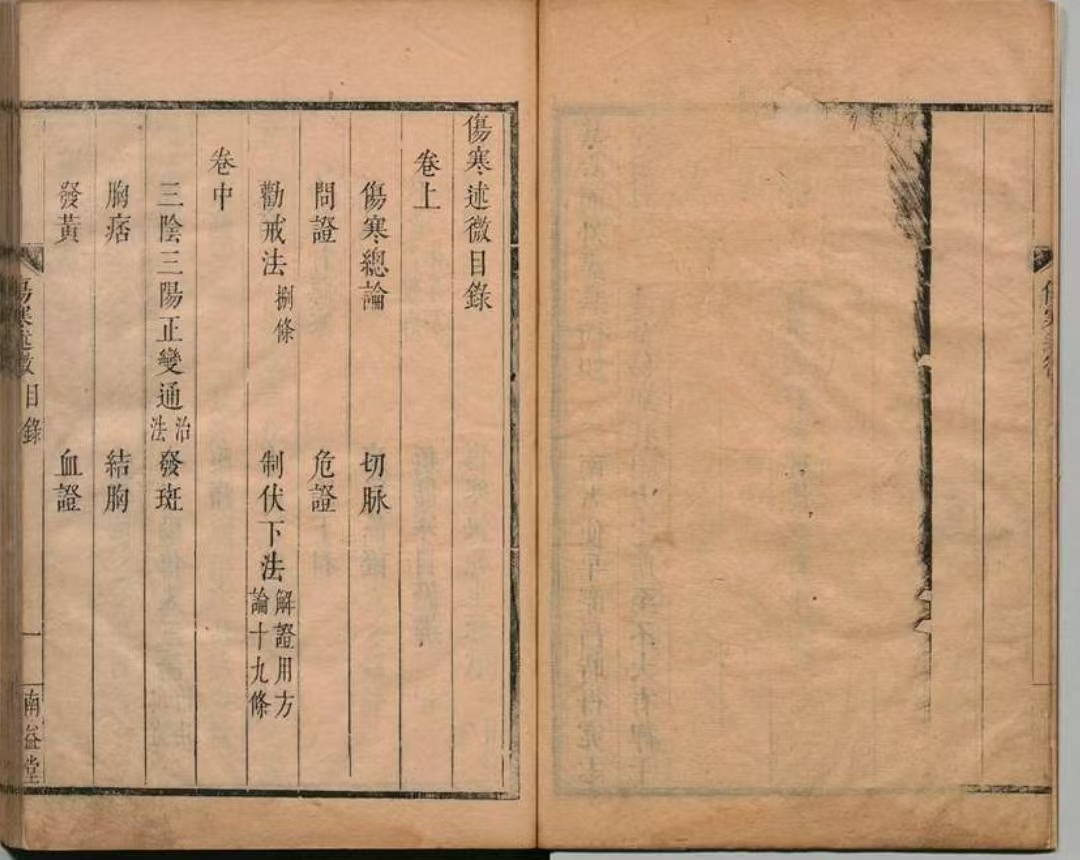 傷寒述微目錄
卷上
傷寒總論 切脉
問證 危證
勸戒法 捌條 制伏下法 解證用方論十九條
卷中
三陰三陽正變通治法 發斑
胸痞 結胸
發黃 血證
傷寒述微 目錄 一 南益堂